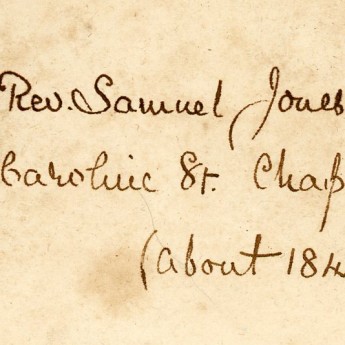 Rev. Samuel Jones
Caroline St. Chap
(about 184